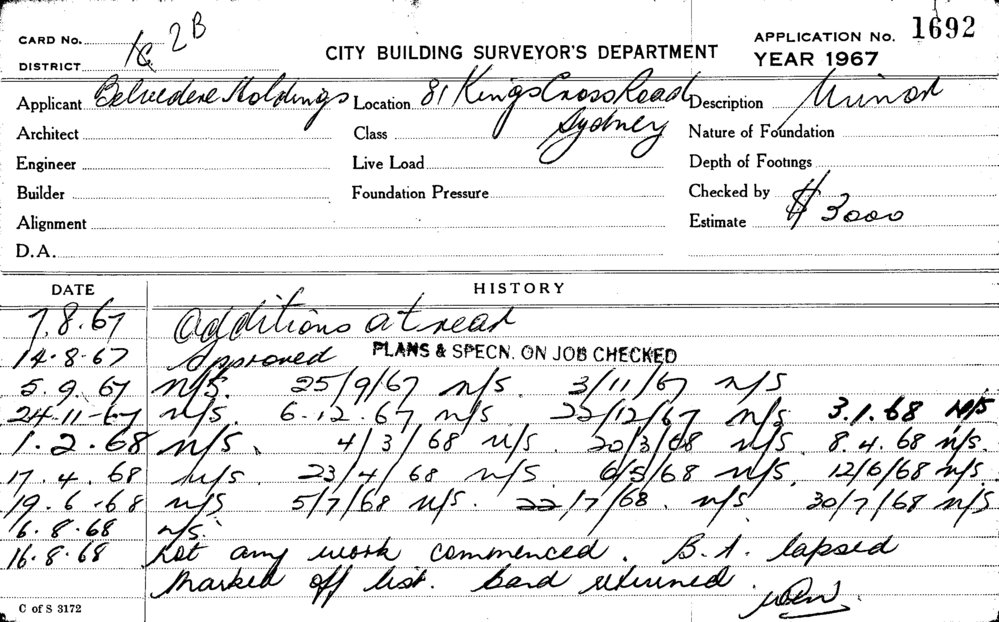 CARD No. 1c 2B
DISTRICT
CITY BUILDING SURVEYOR'S DEPARTMENT
APPLICATION No. 1692
YEAR 1967
Applicant Belvedere Holdings Location 81 Kings Cross Road Description Minor
Architect Class Sydney Nature of Foundation
Engineer Live Load Depth of Footings
Builder Foundation Pressure Checked by
Alignment Estimate $3000
D.A.
DATE HISTORY
7.8.67 Additions at rear
14.8.67 Approved PLANS & SPECN. ON JOB CHECKED
5.9.67 n/s. 25/9/67 n/s. 3/11/67 n/s
24.11.67 n/s. 6.12.67 n/s 22/12/67 n/s. 3.1.68 N/S
1.2.68 n/s. 4/3/68 n/s. 20/3/68 n/s. 8.4.68 n/s.
17.4.68 n/s. 23/4/68 n/s. 6/5/68 n/s. 12/6/68 n/s.
19.6.68 n/s 5/7/68 n/s. 22/7/68. n/s 30/7/68 n/s
6.8.68 n/s.
16.8.68 Not any work commenced. B.A. lapsed
Marked off list. Card returned.
C of S 3172